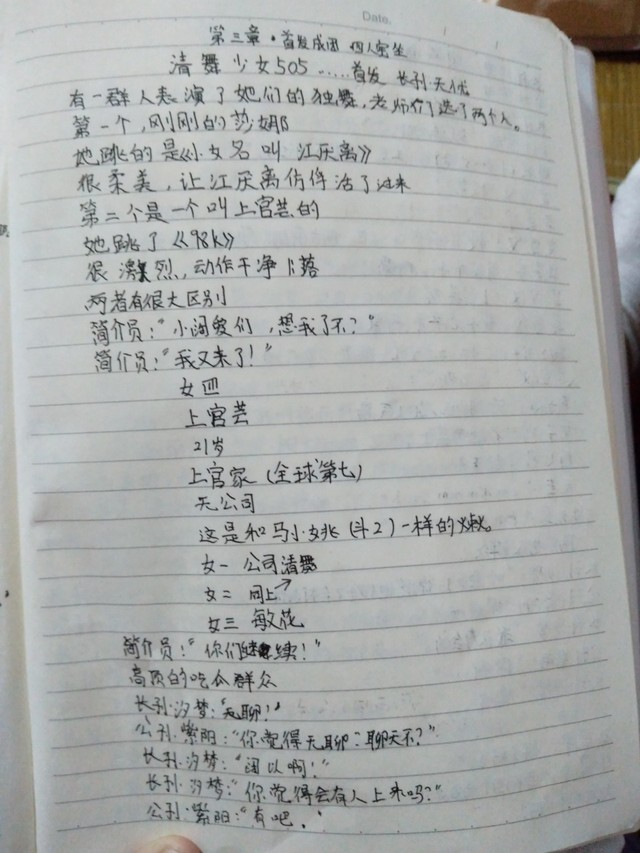 Date.
第三章·首发成团 四人寄生
清舞少女505……首发 长孙·无优
有一群人表演了她们的独舞，老师们选了两个人。
第一个，刚刚的莎娜
她跳的是《小女名叫 江厌离》
很柔美，让江厌离仿佯活了过来
第二个是一个叫上官芸的
她跳了《98k》
很激烈，动作干净卜落
两者有很大区别
简介员："小阔爱们，想我了不？"
简介员："我又来了！"
女四
上官芸
21岁
上官家（全球第七）
无公司
这是和马小姚（斗2）一样的
女一 公司清舞
女二 同上↗
女三 敏花
简介员："你们继续！"
高顶的吃瓜群众
长孙·汐梦："无聊！"
公孙·紫阳："你觉得无聊？聊天不？"
长孙·汐梦："阔以啊！"
长孙·汐梦："你觉得会有人上来吗？"
公孙·紫阳："有吧．"